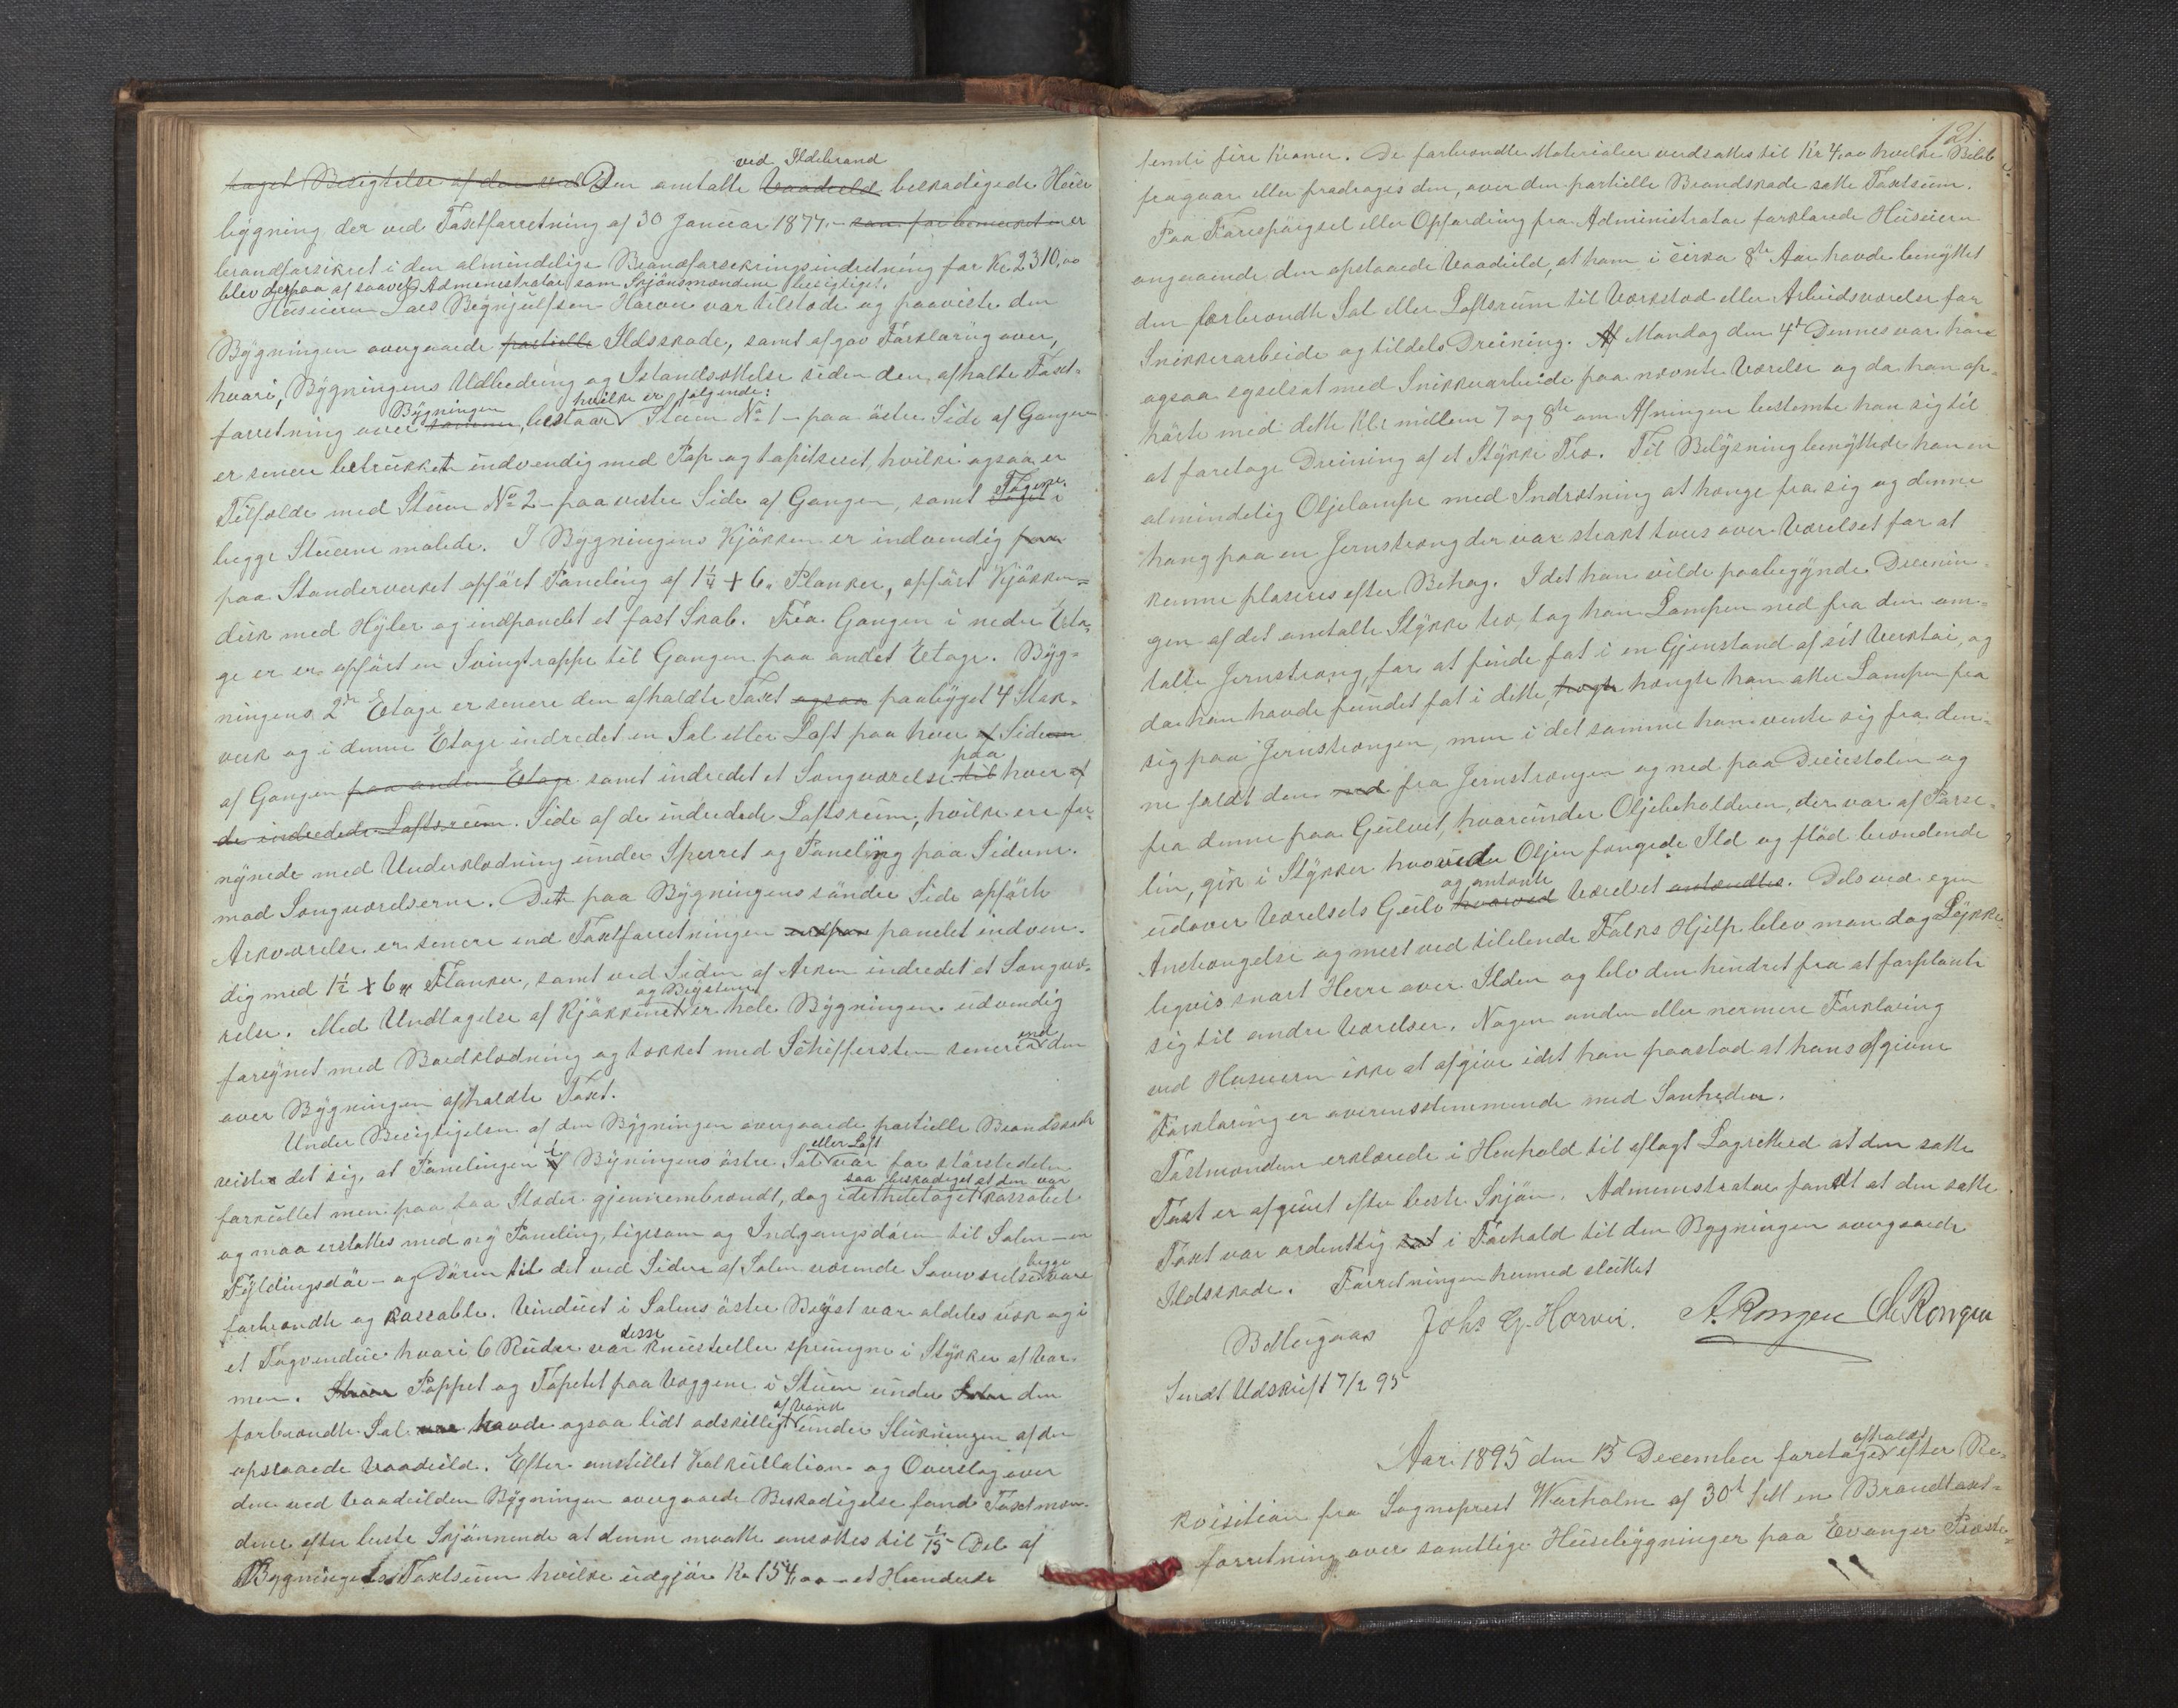 ved Ildebrand
taget Besigtelse af den ved Den omtalte Vaadeild beskadigede Huus
bygning, der ved Taxtforretning af 30 Januar 1877. – som forbemerket er er
brandforsikret i den almindelige Brandforsekringsindretning for Kr 2310,00
blev derpaa af saavel Administrator som Skjönsmændene besigtiget.
Huseieren Lars Brynjulfsen Horvei var tilstede og paaviste den
Bygningen overgaaede partielle Ildsskade, samt afgav Forklaring over,
hvori, Bygningens Udbedring og Istandsættelse siden den afholte Taxt-
forretning over samme Bygningen, bestaar hvilke er følgende: Stuen No 1 – paa östre Side af Gangen
er senere betrukket indvendig med Pap og tapitseret, hvilke ogsaa er
Tilfælde med Stuen No 2 – paa vestre Side af Gangen, samt Taget Tagene i
begge Stuerne malede. I Bygningens Kjökken er indvendig paa
paa Standerverket opfört Paneling af 1 1/4 + 6" Planker, opfört Kjökken-
disk med Hyler og indpanelet et fast Skab. Fra Gangen i nedre Eta-
ge er er opfört en Svingtrappe til Gangen paa andet Etage. Byg-
ningens 2den Etage er senere den afholdte Taxt ogsaa paabygget 4 Stok-
verk og i denne Etage indredet en Sal eller Loft paa hver af Siderne
af Gangen paa anden Etage samt indredet et Sengværelse til paa hver af
de indredede Loftsrum. Side af de indredede Loftsrum, hvilke ere for-
nynede med Underklædning under Sperret og Paneling paa Siderne.
mod Sengværelserne. Det paa Bygningens söndre Side opförte
Arkværelse er senere end Taxtforretningen indpan panelet indven-
dig med 1 1/2 + 6" Planker, samt ved Siden af Arken indredet et Sengvæ-
relse. Med Undtagelse af Kjökkenet og Bryststuen er hele Bygningen udvendig
forsynet med Bordklædning og tækket med Schiffersten senere end den
over Bygningen afholdte Taxt.
Under Besigtigelsen af den Bygningen overgaaede partielle Brandskade
viste det sig, at Panelingen i Bygningens östre Sal eller Loft var for störstedelen
forkullet men paa faa Steder gjennembrændt, dog i det heletaget saa beskadiget at den var kassabel
og maa erstattes med ny Paneling, ligesom og Indgangsdören til Salen – en
Fyldingsdör – og Dören til det ved Siden af Salen værende Soveværelse begge vare
forbrændte og kassable. Vinduet i Salens östre Bryst var aldeles væk og i
et Tagvendue hvori 6 Ruder var desse knuste eller sprungne i Stykker af Var-
men. Stuen Pappet og Tapetet paa Væggene i Stuen under Salen den
forbrændte Sal var havde ogsaa lidt adskilligt af Vand under Slukningen af den
opstaaede Vaadeild. Efter anstillet Kalkullation og Overslag over
den ved Vaadeilden Bygningen overgaaede Beskadigelse fandt Taxtmæn-
dene efter beste Skjönnende at denne maatte ansættes til 1/15 Del af
Bygningens Taxtsum hvilke udgjör Kr 154,00 – et Hundrede
121.
femti fire Kroner. De forbrændte Materialier verdsattes til Kr 4,00 hvilke Belöb
fragaar eller fradrages den, over den partielle Brandskade satte Taxtsum.
Paa Forespörgsel eller Opfordring fra Administrator forklarede Huseieren
angaaende den opstaaede Vaadeild, at han i cirka 8te Aar havde benyttet
den forbrændte Sal eller Loftsrum til Værksted eller Arbeidsværelse for
Snikkerarbeide og tildels Dreining. Af Mandag den 4de Dennes var han
ogsaa sysselsat med Snikkerarbeide paa nævnte Værelse og da han op-
hörte med dette Kl. mellem 7 og 8te om Aftningen bestemte han sig til
at foretage Dreining af et Stykke Træ. Til Belysning benyttede han en
almindelig Oljelampe med Indretning at hænge fra sig og denne
hang paa en Jernstræng der var strakt tvers over Værelset for at
kunne plaseres efter Behag. Idet han vilde paabegynde Dreinin-
gen af det omtalte Stykke træ, tog han Lampen ned fra den om-
talte Jernstræng, for at finde fat i en Gjenstand af sit Verktøi, og
da han havde fundet fat i dette, hægte hængte han atter Lampen fra
sig paa Jernstrængen, men i det samme han vente sig fra den-
ne faldt den ned fra Jernstrængen og ned paa Dreiestolen og
fra denne paa Gulvet, hvorunder Oljebeholderen, der var af Porse-
lin, gik i Stykker hvorved Oljen fængede Ild og flöd brændende
udover Værelsets Gulv hvorved og antænte Værelset antændtes. Dels ved egen
Anstrængelse og mest ved tililende Folks Hjelp blev man dog Lykke-
ligvis snart Herre over Ilden og blev den hindret fra at forplante
sig til andre Værelser. Nogen anden eller nermere Forklaring
ved Huseieren ikke at afgive idet han paastod at hans afgivne
Forklaring er overensstemmende med Sanheden.
Taxtmændene erklærede i Henhold til aflagt Lagretteed at den satte
Taxt er afgivet efter beste Skjön. Admenistrator fandt at den satte
Taxt var ordentlig sat i Forhold til den Bygningen overgaaede
Ildsskade. Forretningen hermed sluttet
Johs G. Horvei. A. Rongen O. Rongen
Sendt Udskrift 7/2 95
Aar 1895 den 15 December foretages afholdt efter Re-
kvisition fra Sogneprest Warholm af 30te f M en Brandtaxt-
forretning over samtlige Husebygninger paa Evanger Præste-